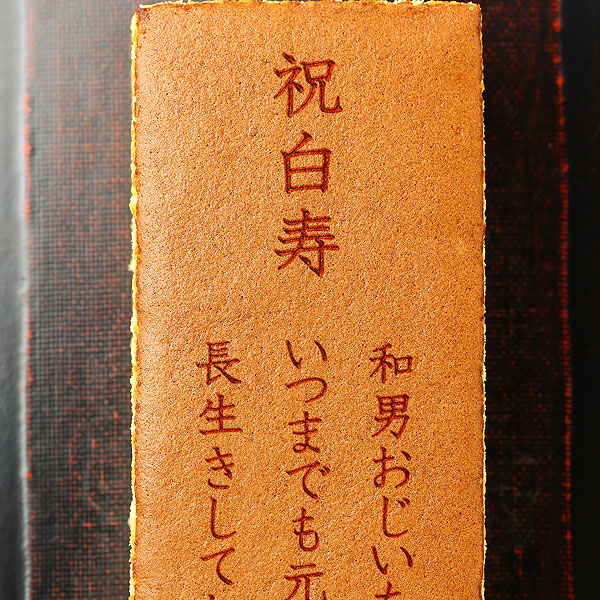 祝白寿
和男おじいち
いつまでも元
長生きして